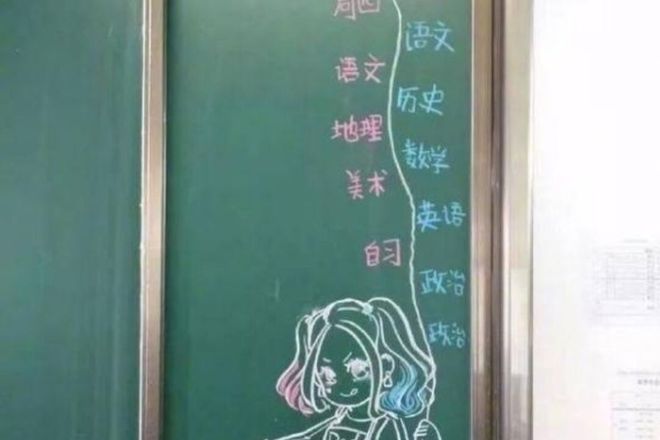 周四
语文
地理
美术
自习
语文
历史
数学
英语
政治
政治